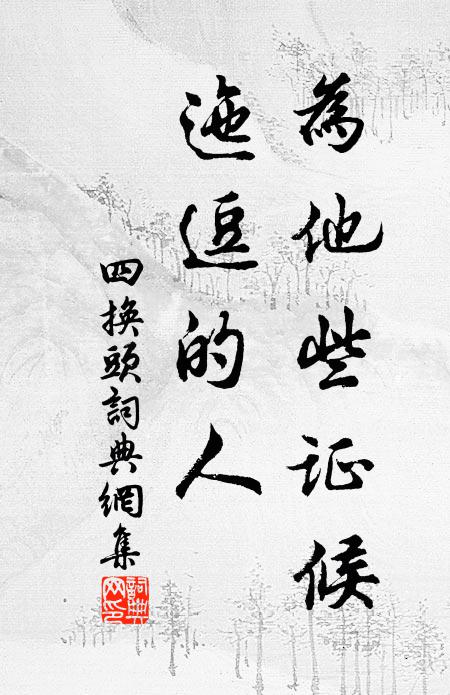 為他些证候
迤逗的人
四換頭詞典網集
詞典
网印